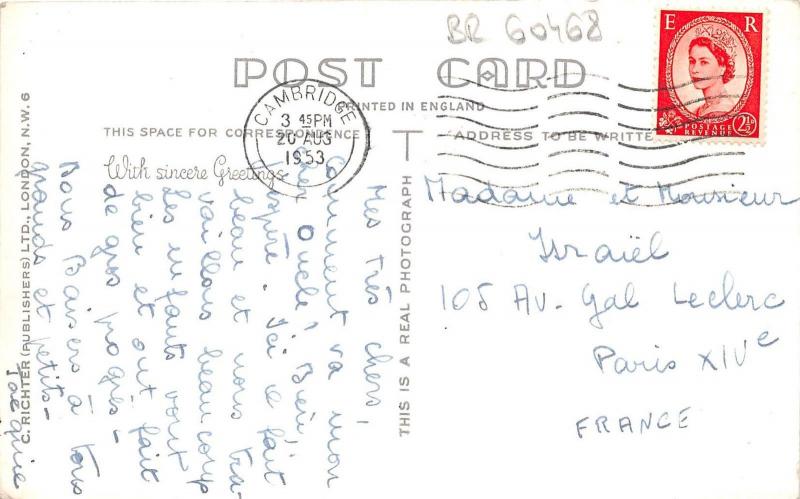 BR 60468
POST CARD
PRINTED IN ENGLAND
THIS SPACE FOR CORRESPONDENCE
ADDRESS TO BE WRITTE
With sincere Greetings
CAMBRIDGE
3 45PM
20 AUG
1953
E R
POSTAGE
REVENUE
2½D
C. RICHTER (PUBLISHERS) LTD., LONDON, N.W. 6
THIS IS A REAL PHOTOGRAPH
Mes très chers,
Comment va mon
cher oncle? Bien,
j'espère. Ici il fait
beau et nous tra-
vaillons beaucoup
Les enfants vont
bien et ont fait
de gros progrès-
Bons Baisers à tous
grands et petits-
Madame et Monsieur
Israël
105 Av. Gal Leclerc
Paris XIVe
FRANCE